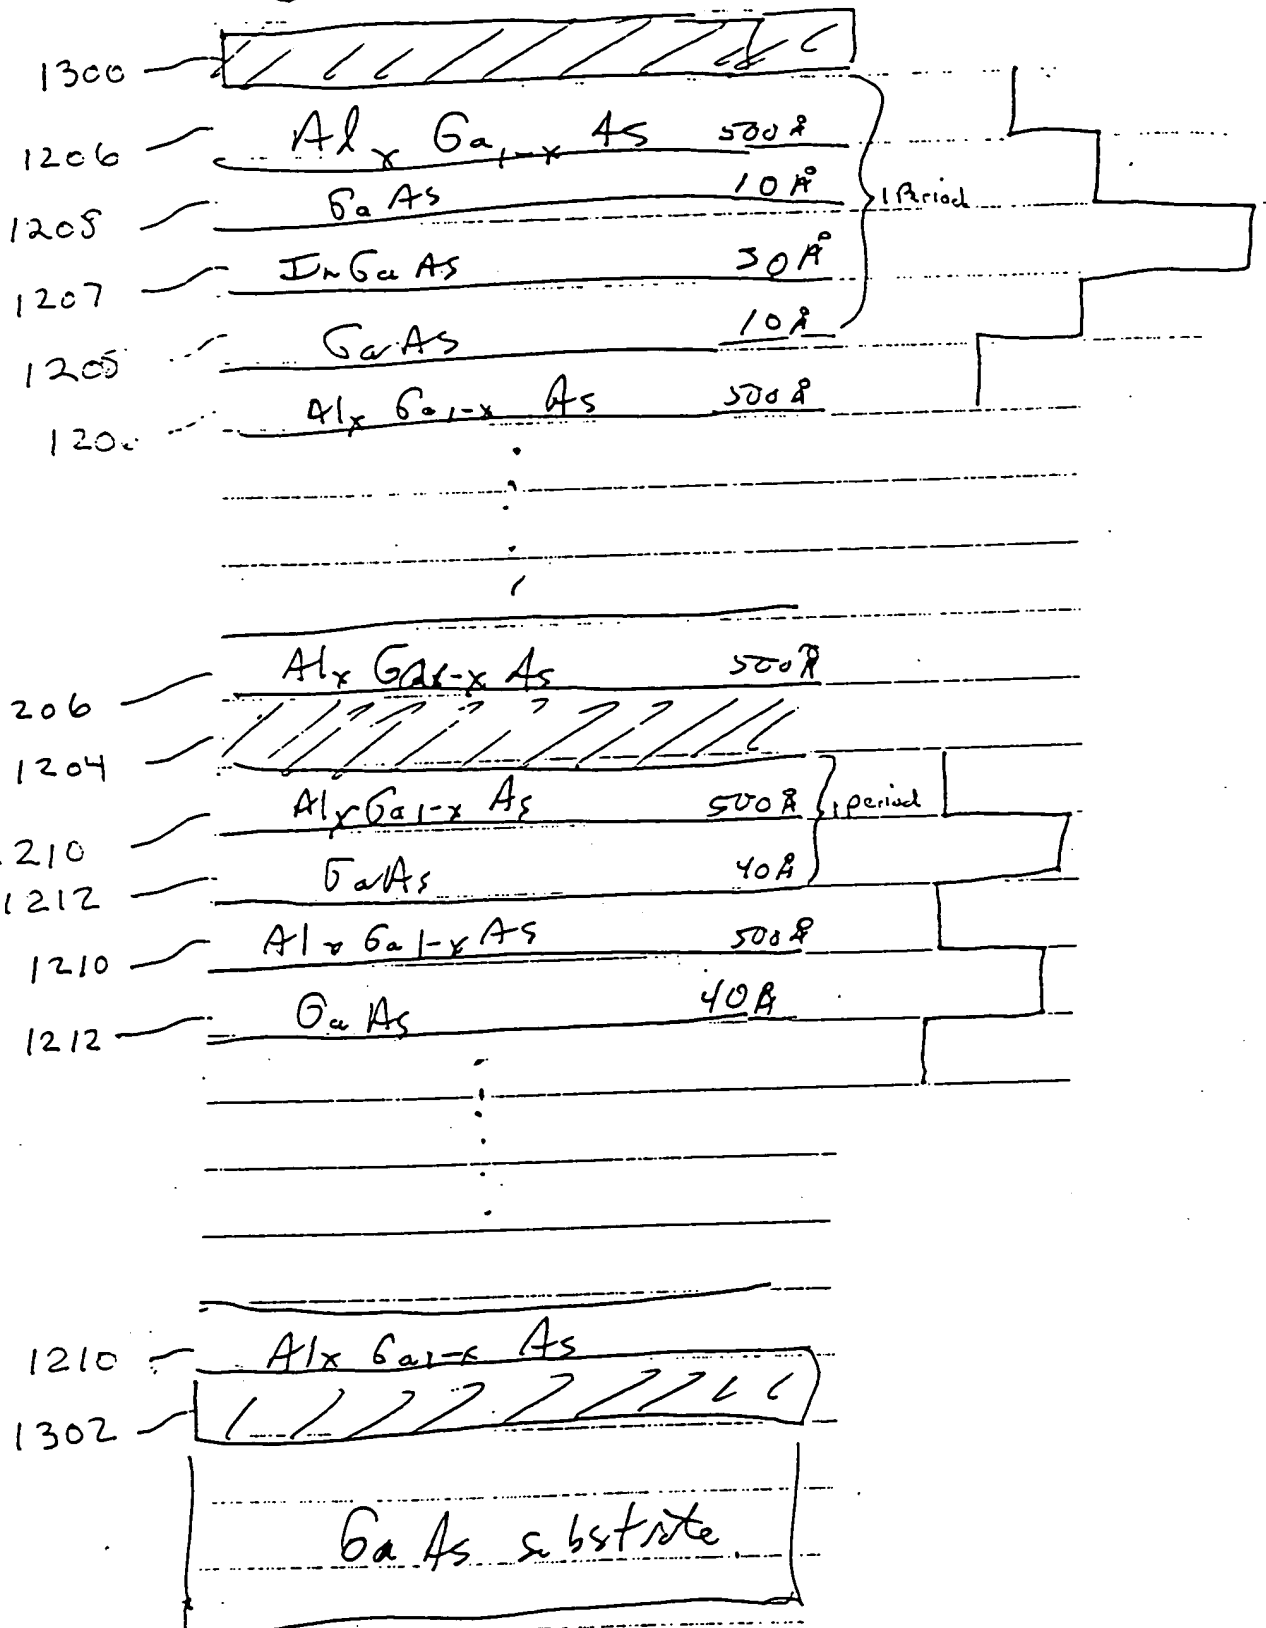 1300
1206 Alx Ga1-x As 500Å
1205 GaAs 10Å 1 Period
1207 InGaAs 30Å
1205 GaAs 10Å
120 Alx Ga1-x As 500Å
206 Alx Ga1-x As 500Å
1204
210 Alx Ga1-x As 500Å 1 period
1212 GaAs 40Å
1210 Alx Ga1-x As 500Å
1212 GaAs 40Å
1210 Alx Ga1-x As
1302
GaAs substrate